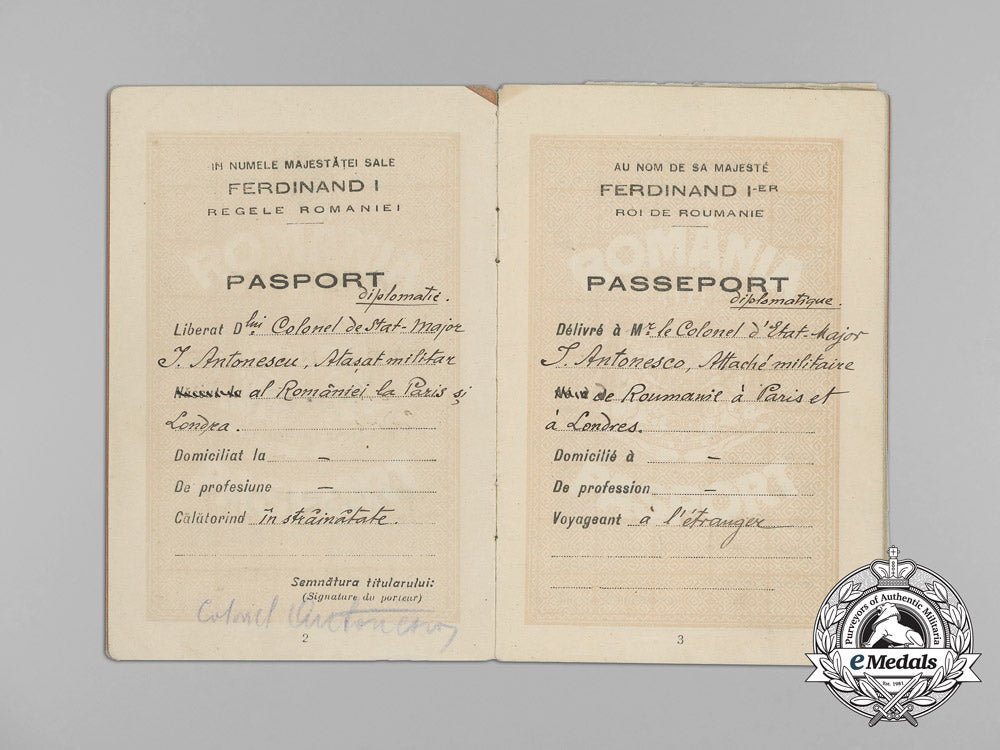 IN NUMELE MAJESTĂȚEI SALE
FERDINAND I
REGELE ROMANIEI
PASPORT
diplomatic.
Liberat Dlui Colonel de Stat-Major
I. Antonescu, Atașat militar
al României la Paris și
Londra.
Domiciliat la –
De profesiune –
Călătorind în străinătate.
Semnătura titularului:
(Signature du porteur)
Colonel Antonescu
2
AU NOM DE SA MAJESTÉ
FERDINAND I-ER
ROI DE ROUMANIE
PASSEPORT
diplomatique.
Délivré à Mr. le Colonel d'Etat-Major
I. Antonesco, Attaché militaire
de Roumanie à Paris et
à Londres.
Domicilié à –
De profession –
Voyageant à l'étranger
3
ROMANIA
ROMANIA
Purveyors of Authentic Militaria
eMedals
Est. 1981